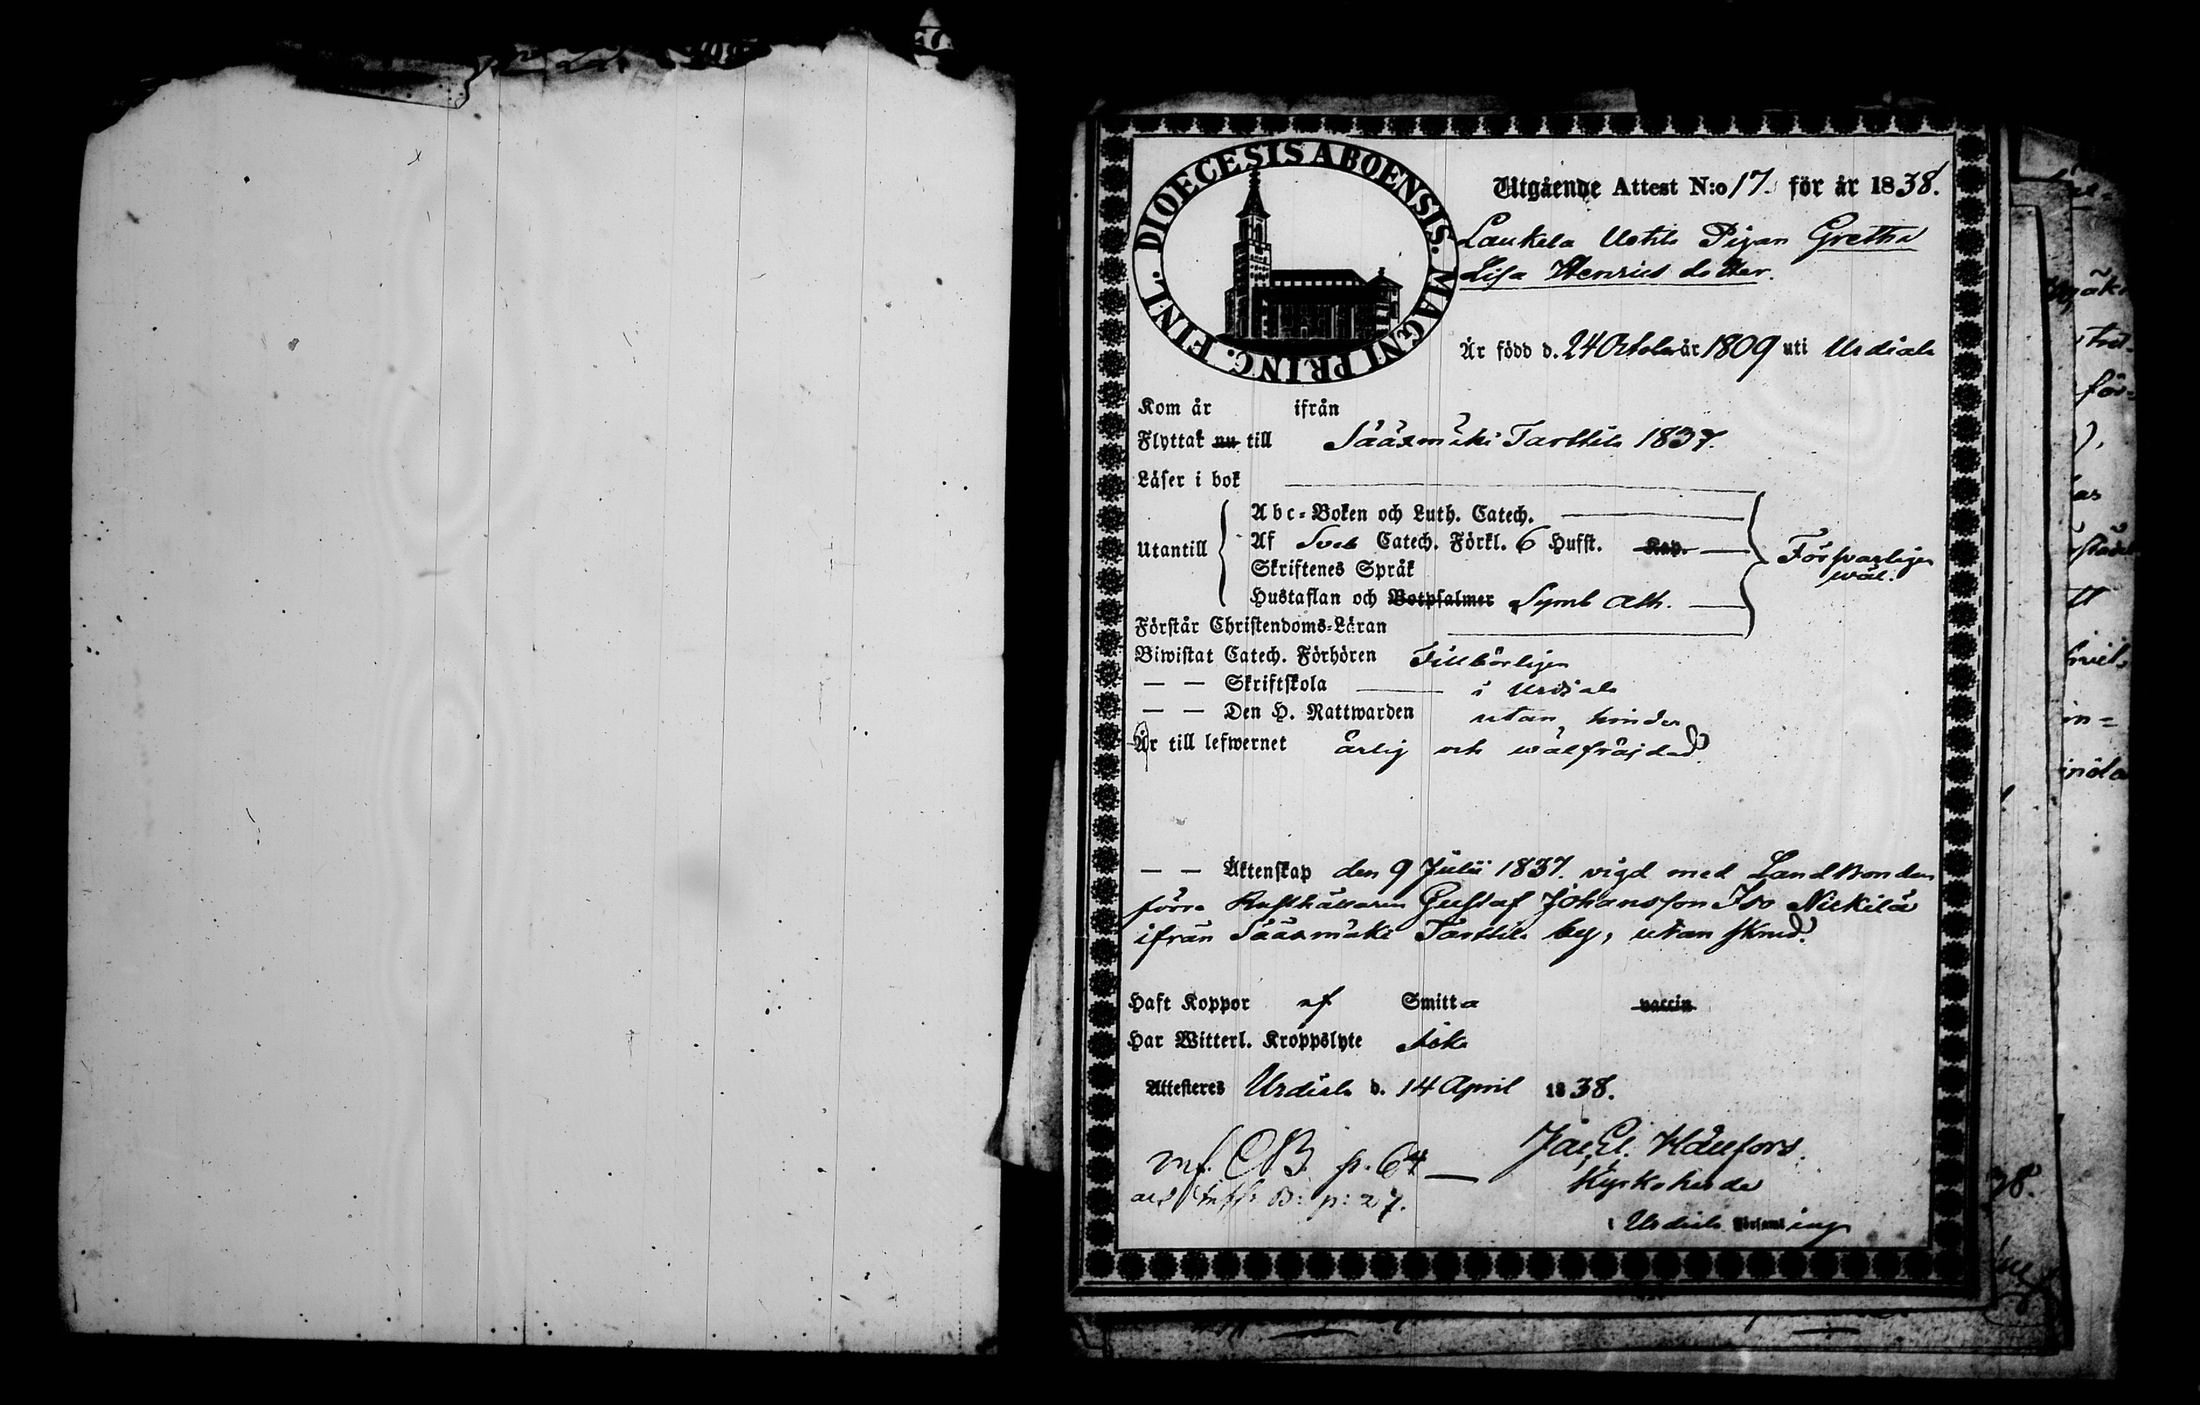 DIOECESIS ABOENSIS. MAGNI PRINC. FINL.
Utgående Attest N:o 17. för år 1838.
Laukela Pigan Gretha
Lisa Henrics dotter.
Är född d. 24 October år 1809 uti Urdiala
Kom år ifrån
Flyttat nu till Sääxmäki Tarttila 1837.
Läser i bok
Abc-Boken och Luth. Catech.
Utantill Af Sveb Catech. Förkl. 6 Hufst. Kap. Försvarligen
wäl.
Skriftenes Språk
Hustaflan och Botpsalmer Symb Ath.
Förstår Christendoms-Läran
Biwistat Catech. Förhören Tillbörligen
— — Skriftskola i Urdiala
— — Den H. Nattwarden utan hinder
Är till lefwernet ärlig och wälfräjdad.
— — Äktenskap den 9 Julii 1837. vigd med Landbonden
förre Rusthållaren Gustaf Johansson Iso Nickilä
ifrån Sääxmäki Tarttila by, utan skrud.
Haft Koppor af Smitta vaccin
Har Witterl. Kroppslyte Icke
Attesteres Urdiala d. 14 April 1838.
Hällfors.
Kyrkoherde
i Urdiala Församling
CB. p. 64
B: p: 27.